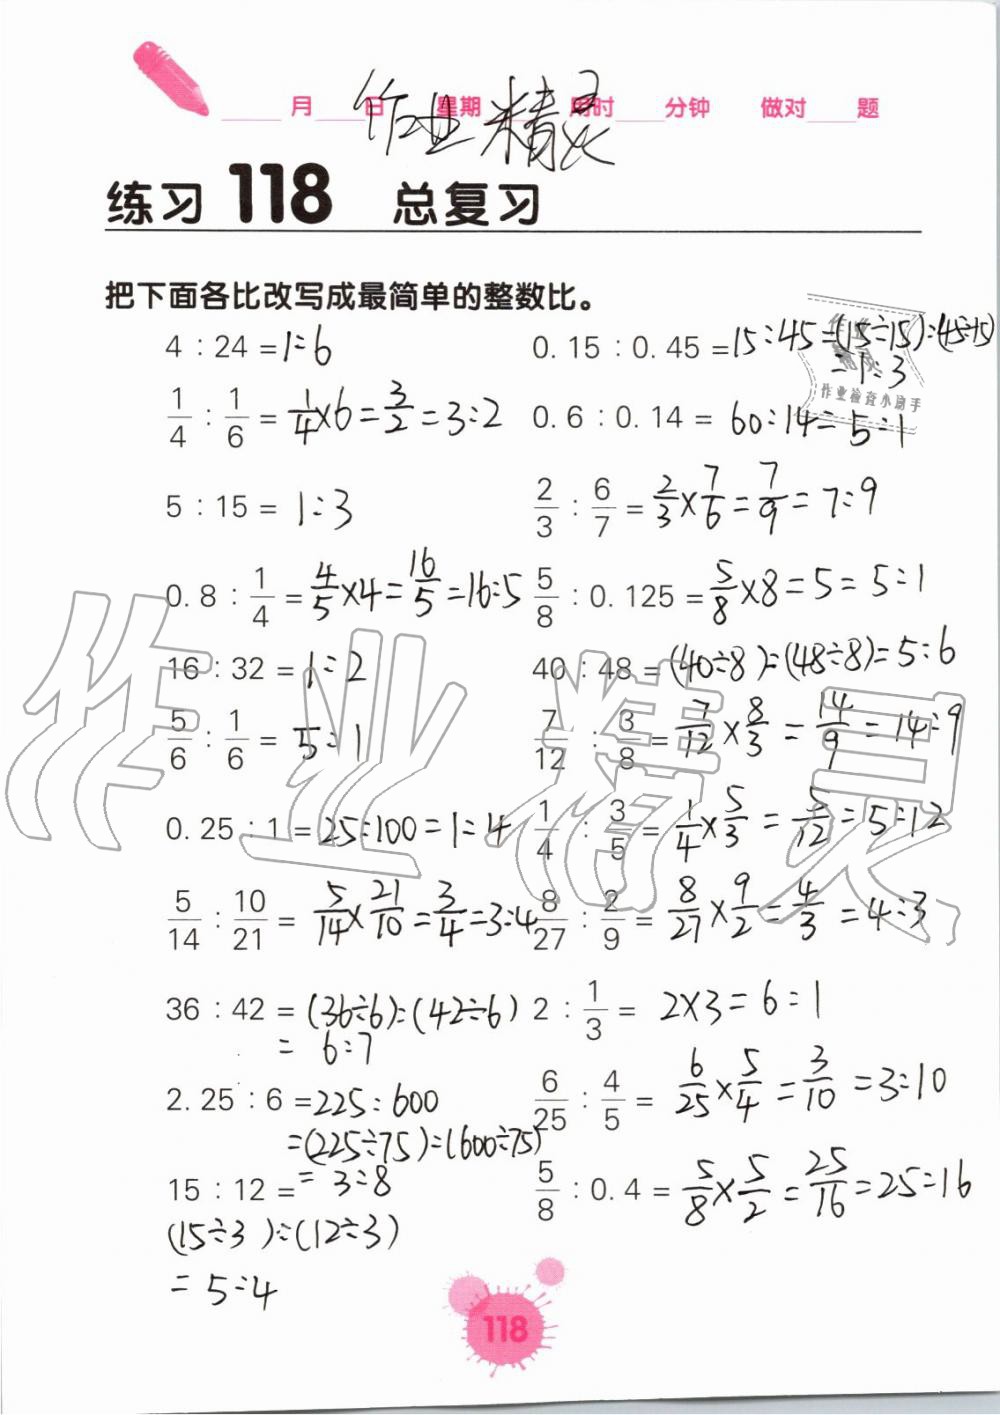 ____月____日 星期____ 用时____分钟 做对____题
作业精灵
练习 118 总复习
把下面各比改写成最简单的整数比。
4 : 24 = 1:6
0.15 : 0.45 = 15:45 = (15÷15):(45÷15)
= 1:3
作业检查小助手
1/4 : 1/6 = 1/4×6 = 3/2 = 3:2
0.6 : 0.14 = 60:14 = 5:1
5 : 15 = 1:3
2/3 : 6/7 = 2/3×7/6 = 7/9 = 7:9
0.8 : 1/4 = 4/5×4 = 16/5 = 16:5
5/8 : 0.125 = 5/8×8 = 5 = 5:1
16 : 32 = 1:2
40 : 48 = (40÷8):(48÷8) = 5:6
5/6 : 1/6 = 5:1
7/12 : 3/8 = 7/12×8/3 = 14/9 = 14:9
0.25 : 1 = 25:100 = 1:4
1/4 : 3/5 = 1/4×5/3 = 5/12 = 5:12
5/14 : 10/21 = 5/14×21/10 = 3/4 = 3:4
8/27 : 2/9 = 8/27×9/2 = 4/3 = 4:3
36 : 42 = (36÷6):(42÷6)
= 6:7
2 : 1/3 = 2×3 = 6:1
2.25 : 6 = 225:600
= (225÷75):(600÷75)
= 3:8
6/25 : 4/5 = 6/25×5/4 = 3/10 = 3:10
15 : 12 =
(15÷3):(12÷3)
= 5:4
5/8 : 0.4 = 5/8×5/2 = 25/16 = 25:16
作业精灵
118